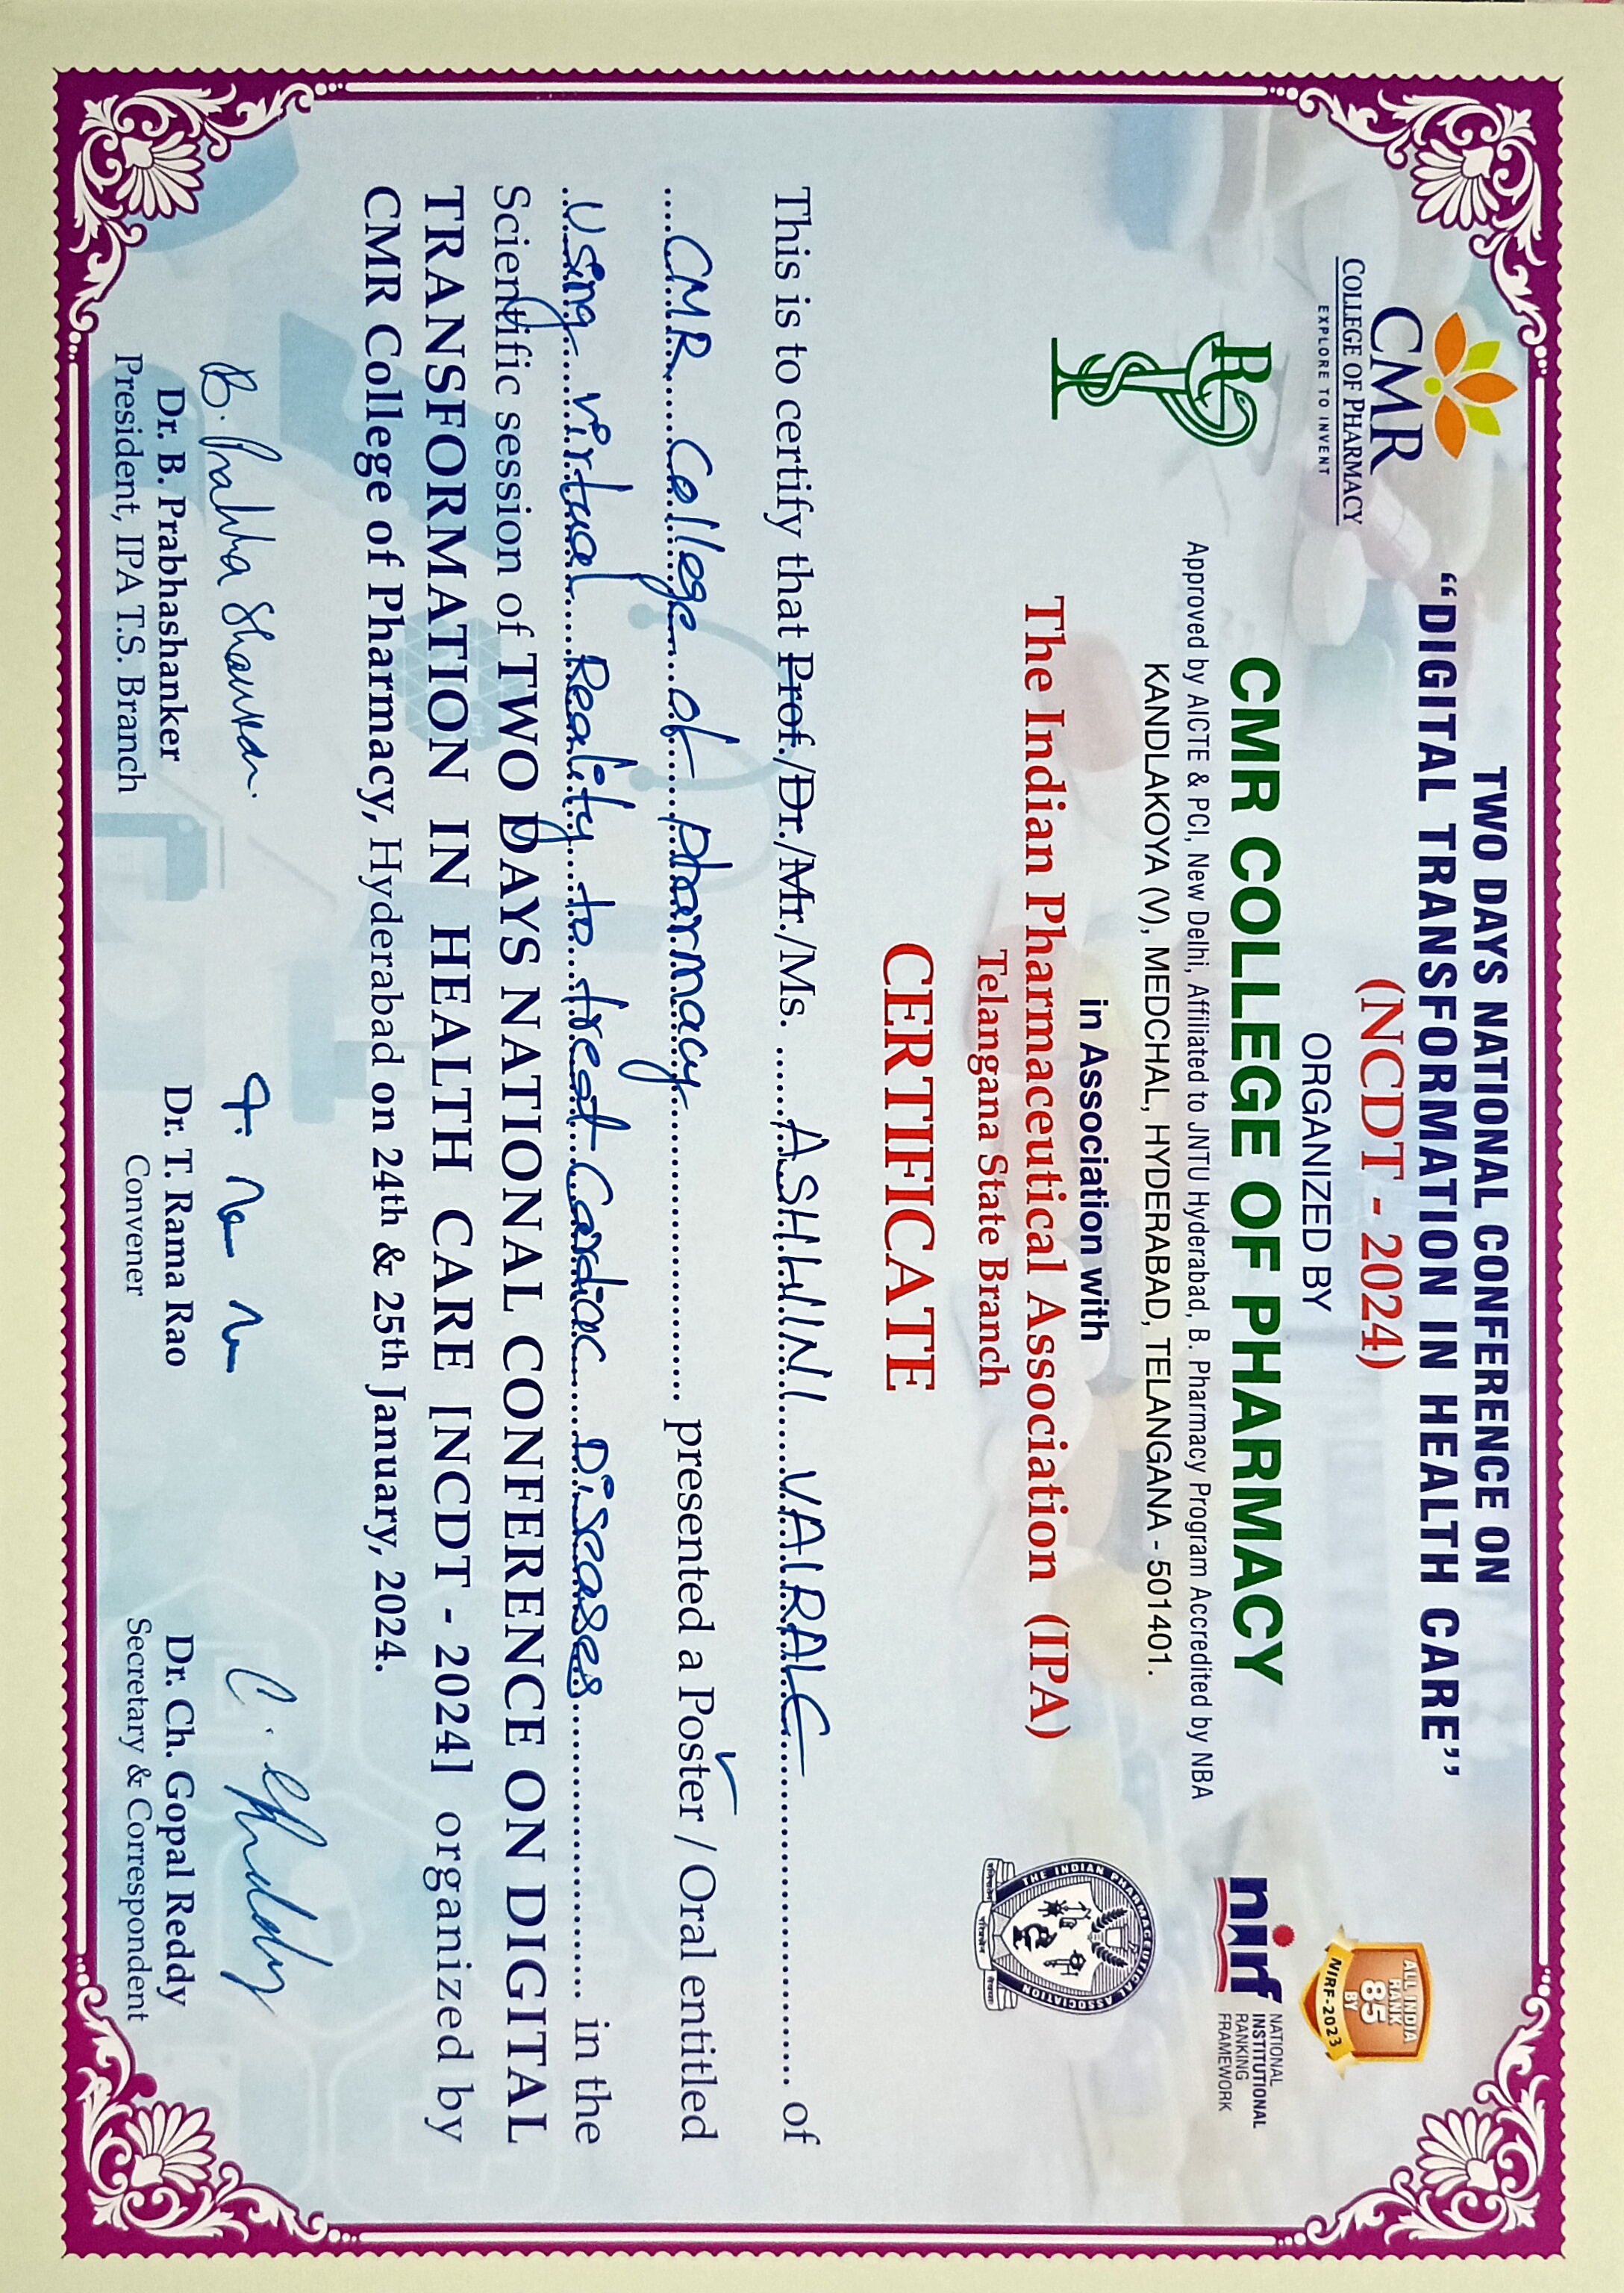 TWO DAYS NATIONAL CONFERENCE ON
“DIGITAL TRANSFORMATION IN HEALTH CARE”
(NCDT - 2024)
CMR
COLLEGE OF PHARMACY
EXPLORE TO INVENT
ALL INDIA
RANK
85
BY
NIRF-2023
ORGANIZED BY
CMR COLLEGE OF PHARMACY
Approved by AICTE & PCI, New Delhi, Affiliated to JNTU Hyderabad, B. Pharmacy Program Accredited by NBA
KANDLAKOYA (V), MEDCHAL, HYDERABAD, TELANGANA - 501401.
R
nirf
NATIONAL
INSTITUTIONAL
RANKING
FRAMEWORK
in Association with
The Indian Pharmaceutical Association (IPA)
Telangana State Branch
THE INDIAN PHARMACEUTICAL ASSOCIATION
CERTIFICATE
This is to certify that Prof./Dr./Mr./Ms. ASHWINI VAIRALE of
CMR College of pharmacy presented a Poster / Oral entitled
Using virtual Reality to treat Cardiac Diseases in the
Scientific session of TWO DAYS NATIONAL CONFERENCE ON DIGITAL
TRANSFORMATION IN HEALTH CARE [NCDT - 2024] organized by
CMR College of Pharmacy, Hyderabad on 24th & 25th January, 2024.
B. Prabha Shankar.
Dr. B. Prabhashanker
President, IPA T.S. Branch
Dr. T. Rama Rao
Convener
Dr. Ch. Gopal Reddy
Secretary & Correspondent